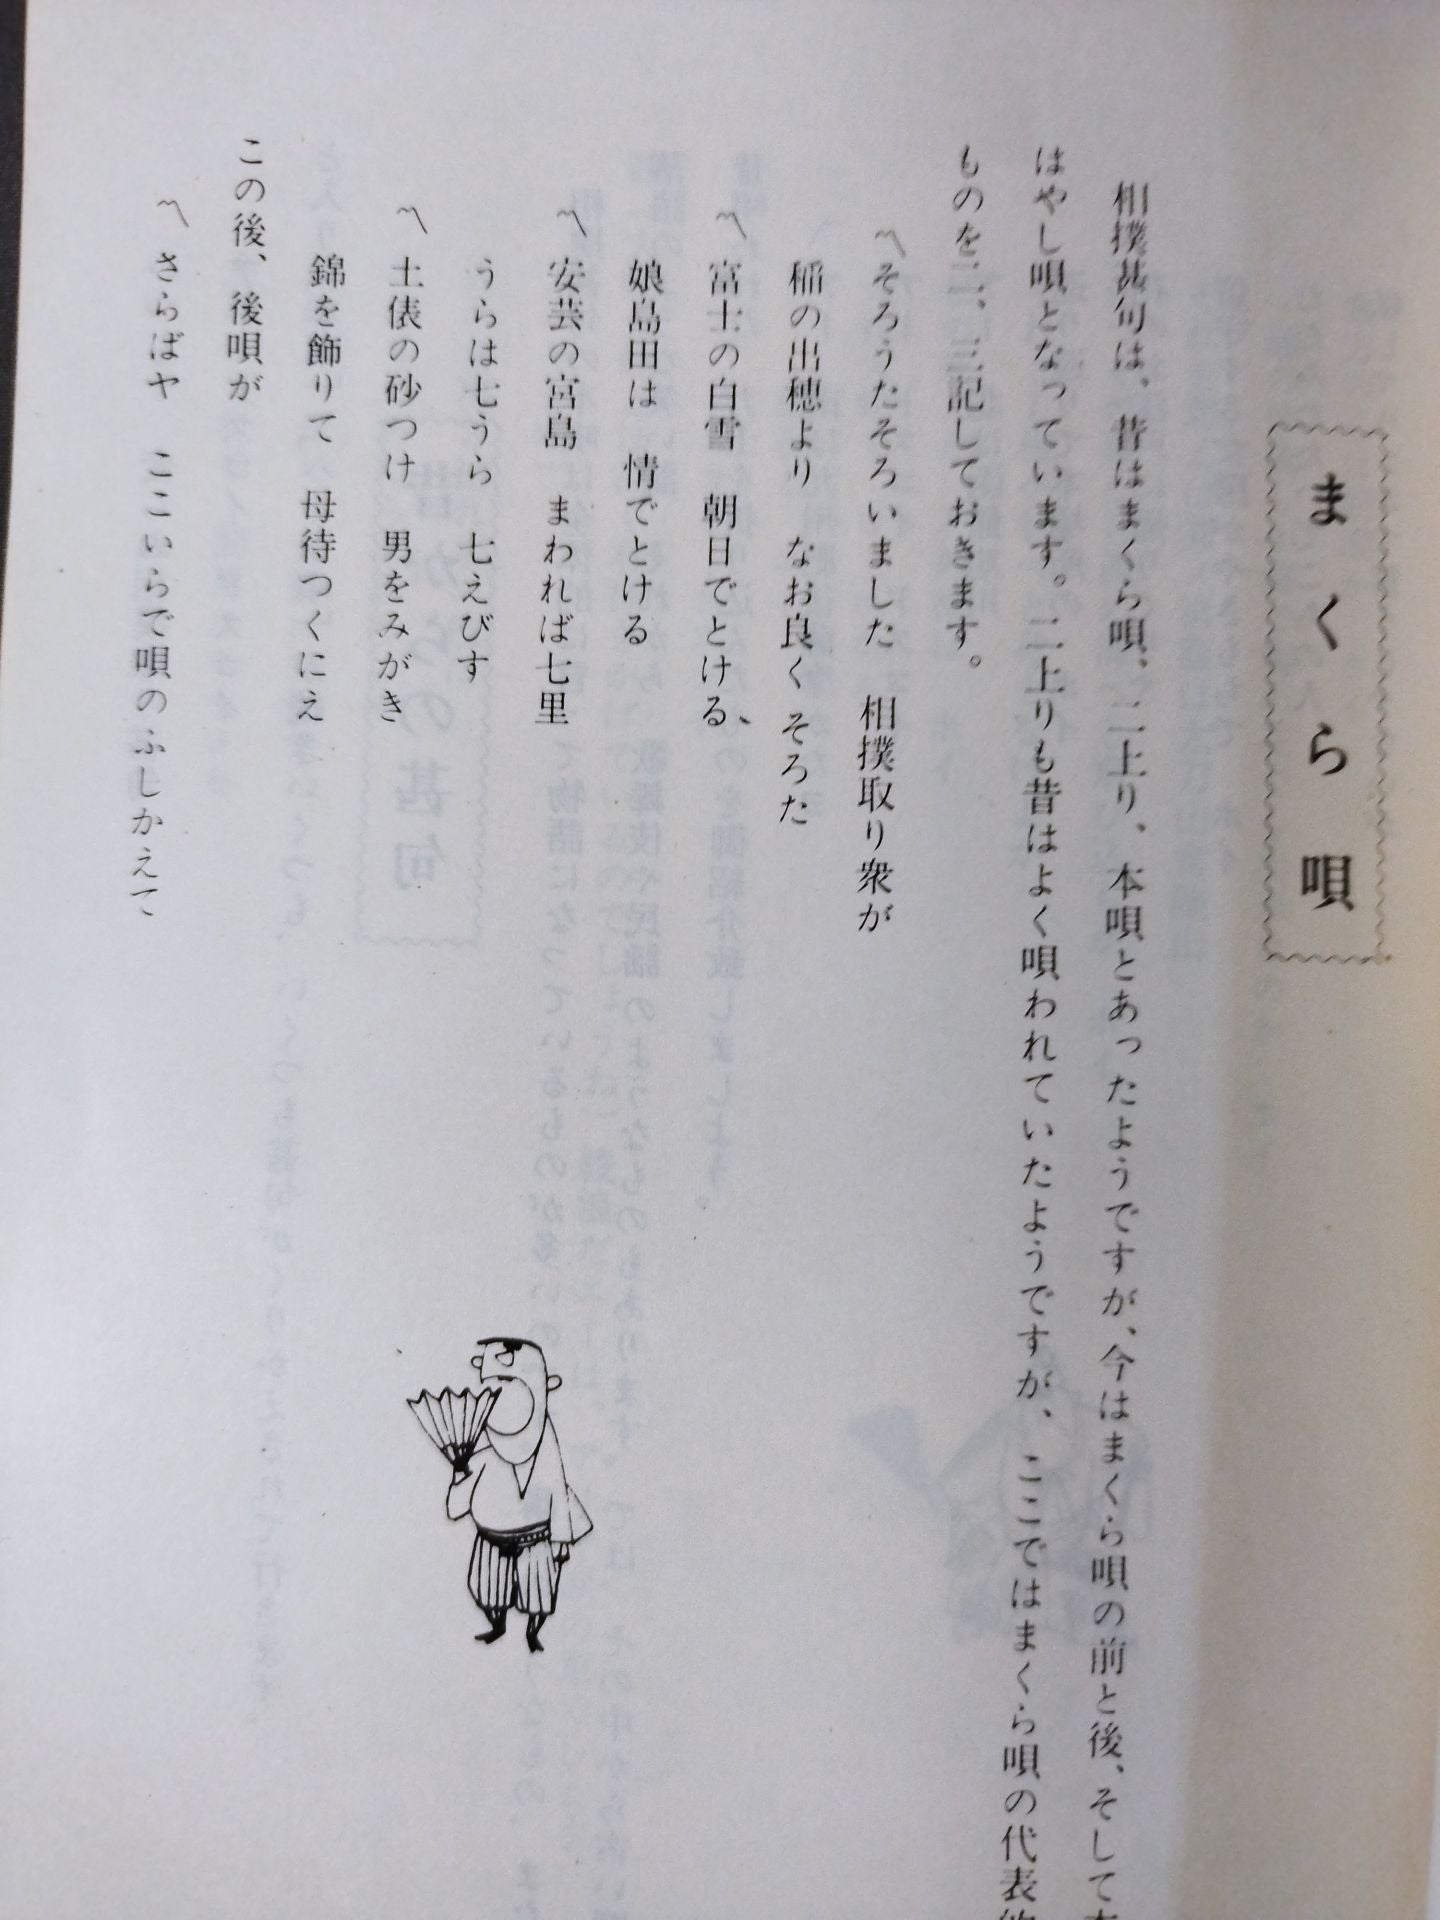 まくら唄
相撲甚句は、昔はまくら唄、二上り、本唄とあったようですが、今はまくら唄の前と後、そして
はやし唄となっています。二上りも昔はよく唄われていたようですが、ここではまくら唄の代表
ものを二、三記しておきます。
〽そろうたそろいました 相撲取り衆が
稲の出穂より なお良くそろた
〽富士の白雪 朝日でとける、
娘島田は 情でとける
〽安芸の宮島 まわれば七里
うらは七うら 七えびす
〽土俵の砂つけ 男をみがき
錦を飾りて 母待つくにえ
この後、後唄が
〽さらばヤ ここいらで唄のふしかえて